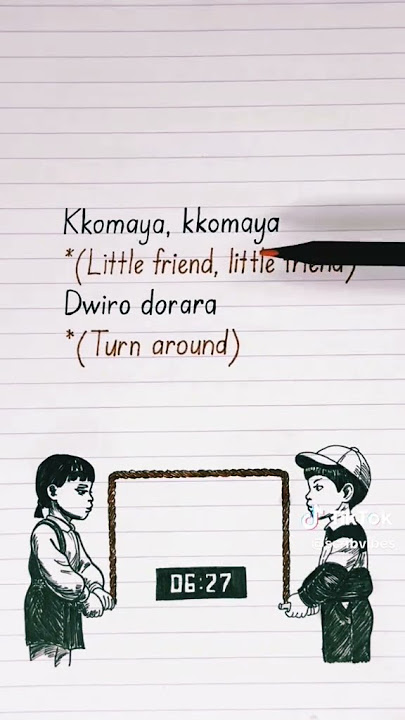 Kkomaya, kkomaya
*(Little friend, little friend)
Dwiro dorara
*(Turn around)
06:27
TikTok